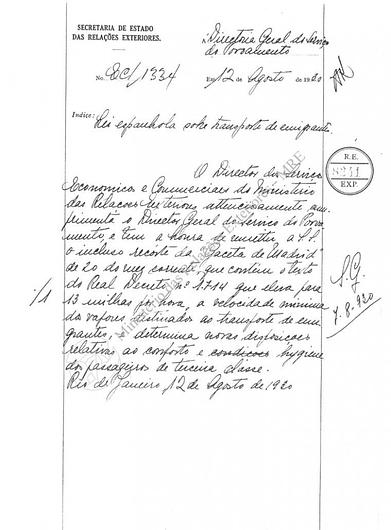 SECRETARIA DE ESTADO
DAS RELAÇÕES EXTERIORES.
Directoria Geral do Serviço
do Povoamento
No. EC/1334
Em 12 de Agosto de 1920
Indice: Lei espanhola sobre transporte de emigrante.
R.E.
8241
EXP.
O Director dos Serviços
Economicos e Commerciaes do Ministerio
das Relacoes Exteriores attenciosamente cum-
primenta o Director Geral do Serviço do Povoa-
mento, e tem a honra de remetter, a S.S.
o incluso recorte da "Gaceta de Madrid"
de 20 do mez corrente, que contém o texto
do Real Decreto nº 1714 que eleva para
13 milhas por hora, a velocidade minima
dos vapores destinados ao transporte de emi-
grantes, e determina novas disposicoes
relativas ao conforto e condicoes hygiene
dos passageiros de terceira classe.
Rio de Janeiro, 12 de Agosto de 1920
:/1
S.G.
7.8.920
Ministerio das Relações Exteriores - MRE